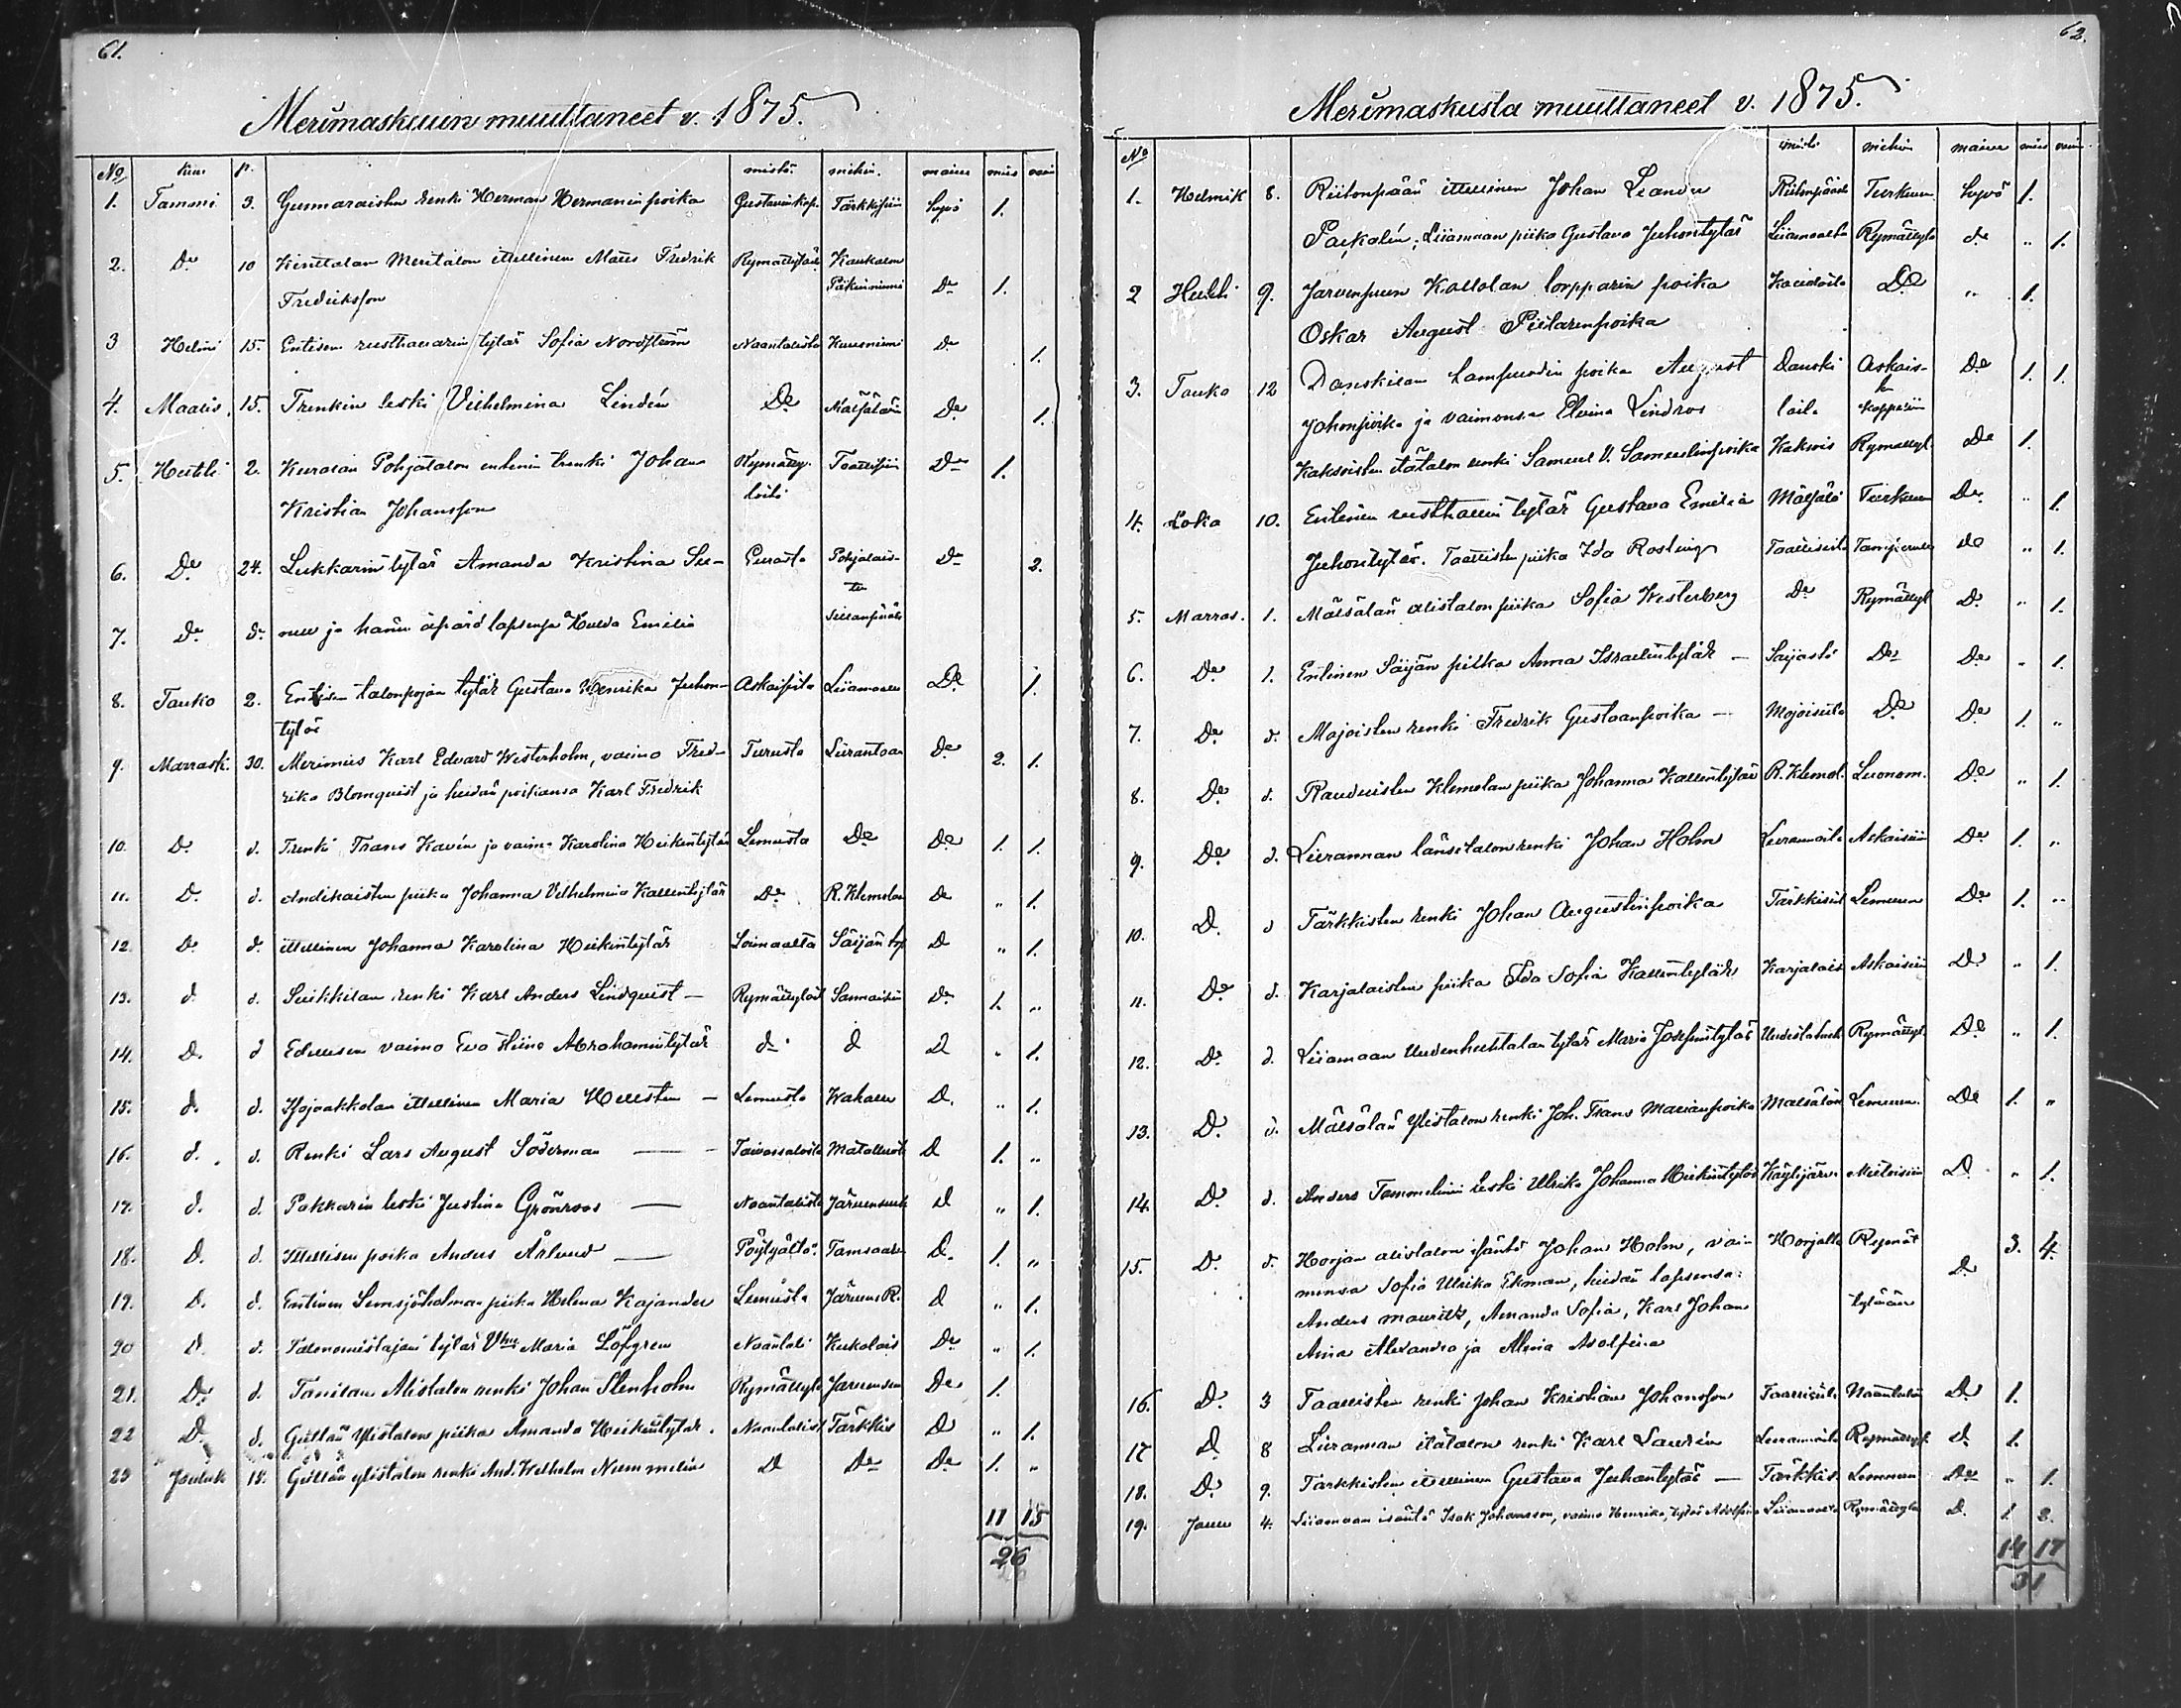 61.
Merimaskuun muuttaneet v. 1875.
No kuu p. mistä. mihin. maine mies vaim
1. Tammi 3. Gunnaraisten renki Herman Hermanin poika Gustavin kap. Tärkkisiin hyvä 1.
2. Do 10 Meritalon itsellinen Mats Fredrik Rymättylästä
Fredriksson Do 1.
3 Helmi 15. Entisen rusthollarin tytär Sofia Nordström Naantalista Kuusniemi Do 1.
4. Maalis. 15. Trenkin leski Vilhelmina Lindén Do Mälsälään Do 1.
5. Huhti 2. Kuralan Pohjatalon entinen trenki Johan Rymätty- Taattisiin Do 1.
Kristian Johansson löitä
6. Do 24. Lukkarin tytär Amanda Kristina Su- Eurasta Pohjalais- Do 2.
ten
7. Do do nee ja hänen äpärä lapsensa Hulda Emilia
8. Touko 2. Entisen talonpojan tytär Gustava Henrika Juhon- Askaisista Liiamaalle Do 1.
tytär
9. Marrask. 30. Merimies Karl Edvard Westerholm, vaimo Fred- Turusta Liirantaan Do 2. 1.
rika Blomquist ja heidän poikansa Karl Fredrik
10. D. d. Trenki Frans Kavén ja vaimo Karolina Heikintytär Lemusta Do Do 1. 1.
11. D. d. Andikaisten piika Johanna Vilhelmina Kallentytär Do R. Klemolan D „ 1.
12. D. d. ittellinen Johanna Karolina Heikintytär Loimaalta Säijän D „ 1.
13. d. d. Suikkilan renki Karl Anders Lindquist — Rymättylästä Sannaisiin Do 1. „
14. D. d Edellisen vaimo Eva Stiina Abrahamintytär d. d D „ 1.
15. d. d. Isojaakkolan ittellinen Maria Hellsten — Lemusta Wahalle D. „ 1.
16. d. d. Renki Lars August Söderman — Taivassalosta D 1. „
17. d. d. Pakkarin leski Justina Grönroos — Naantalista Järvensuu D „ 1.
18. D. d. Ittellisen poika Anders Ärlund — Pöytyältä Tamsaari D. 1. „
19. D. d. Entinen Lemsjöholman piika Helena Kajander Lemusta Järvens R. D „ 1.
20 D. d. Talonomistajan tytär Maria Löfgren Naantali Kukolais Do „ 1.
21. Do d. Tanilan Alistalon renki Johan Stenholm Rymättylä Järvensuu Do 1.
22 D. d. Güllän Ylistalon piika Amanda Heikintytär. Naantalist Tärkkis D „ 1.
23 Jouluk 18. Güllän ylistalon renki And. Wilhelm Nummelin D Do Do 1. „
11 15
26
62.
Merimaskusta muuttaneet v. 1875.
No mistä mihin maine mies vaim
1. Helmik 8. Riitonpään ittellinen Johan Leander Riitonpäästä Turkuun hyvä 1.
Liiamaan piika Gustava Juhontytär Liiamaalta Rymättylä do „ 1.
2 Huhti 9. Järvenpuen Kallolan lopparin poika Do „ 1.
Oskar August Pietarinpoika
3. Touko 12 Danskilan lampuodin poika August Danski Askais- Do 1. 1.
Johonpoika ja vaimonsa Elvina Lindros loila
Kaksoisten itätalon renki Samuel V. Samuelinpoika Kaksois Rymättyl. Do 1.
4. Loka 10. Entisen rusthollin tytär Gustava Emilia Mälsälä Turkuun Do „ 1.
Juhontytär. Taattisten piika Ida Rosling Taattisista do „ 1.
5. Marras. 1. Mälsälän alistalon piika Sofia Westerberg Do Rymättyl D. „ 1.
6. Do 1. Entinen Säijän piika Anna Israelintytär — Säijästä Do Do „ 1.
7. Do d. Mojoisten renki Fredrik Gustaanpoika — Mojoisista Do Do 1. „
8. Do d. Rauduisten Klemolan piika Johanna Kallentytär R. Klemol. Luonom. Do „ 1.
9. Do d. Liirannan länsitalon renki Johan Holm Liirannalta Askaisiin Do 1. „
10. D. d Tärkkisten renki Johan Augustinpoika Tärkkisist Lemuun Do 1. „
11. Do d. Karjalaisten piika Ida Sofia Kallentytär Karjalais Askaisiin D. „ 1.
12. Do d. Liiamaan Uudenhuhtalan tytär Maria Josefintytär Rymättyl. Do „ 1.
13. D. d. Mälsälän Ylistalon renki Joh. Frans Marianpoika Mälsälän Lemuun. Do 1. „
14. D. d. Anders Tammelinin leski Ulrika Johanna Heikintytär Käytyjärvi Mietoisiin D „ 1.
15. D. d. Horjan alistalon isäntä Johan Holm, vai- Horjalla Rymät 3. 4.
monsa Sofia Ulrika Ekman, heidän lapsensa: D.
Anders Mauritz, Amanda Sofia, Karl Johan tylään
Aina Alexandra ja Alma Adolfina
16. D. 3 Taattisten renki Johan Kristian Johansson Taattisista Naantaliin D. 1.
17 D 8 Liirannan itätalon renki Karl Laurén Liirannalta Rymättyl. D. 1.
18. D. 9. Tärkkisten itsellinen Gustava Juhantytär — Tärkkis. Lemuun Do „ 1.
19. Joulu 4. Liiamaan isäntä Isak Johansson, vaimo Henrika, tytär Adolfina Liiamaalta Rymättylä D. 1. 2.
14 17
31